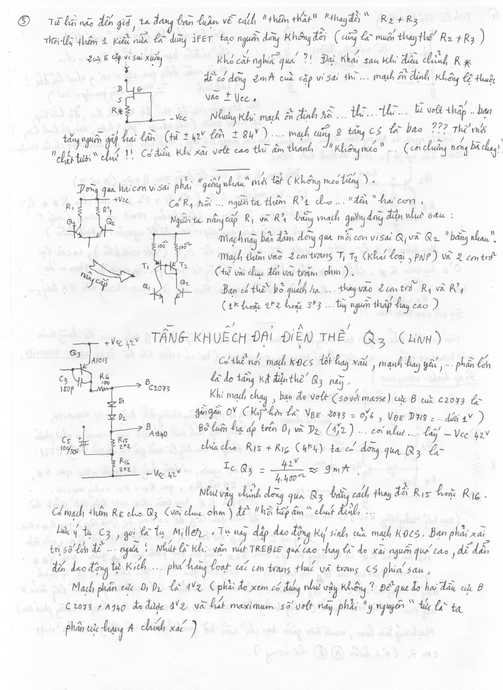 ⑤ Từ hồi nào đến giờ, ta đang bàn luận về cách "thêm thắt" "thay đổi" R2 + R3
Thôi thì thêm 1 kiểu nữa là dùng jFET tạo nguồn dòng không đổi (cũng là muốn thay thế R2 + R3)
2 cực E cặp vi sai xuống
D
S
R*
-Vcc
Khó cắt nghĩa quá ?! Đại khái sau khi điều chỉnh R*
để có dòng 2mA của cặp vi sai thì ... mạch ổn định không lệ thuộc
vào ± Vcc.
Nhưng khi mạch ổn định rồi ... thì ... thì ... từ volt thấp .. bạn
tăng nguồn gấp hai lần (từ ±42V lên ±84V) .... mạch cũng
"chết tươi" chứ !! Có điều khi xài volt cao thì âm thanh "không méo" ...
Dòng qua hai con vi sai phải "giống nhau" mới tốt (không méo tiếng).
+Vcc
R1
R'1
Q1
Q2
nâng cấp
Có R1 rồi ... người ta thêm R'1 cho ... "đều" hai con.
Người ta nâng cấp R1 và R'1 bằng mạch gương dòng điện như sau :
100
T1
T2
Q1
Q2
Mạch này bảo đảm dòng qua mỗi con vi sai Q1 và Q2 "bằng nhau".
Mạch thêm vào 2 con trans T1 T2 (khác loại, PNP) và 2 con trở
(từ vài chục đến vài trăm ohm).
Bạn có thể bỏ quách ... thay vào 2 con trở R1 và R'1
(1K hoặc 2K2 hoặc 3K3 ... tùy nguồn thấp hay cao)
TẦNG KHUẾCH ĐẠI ĐIỆN THẾ Q3 (LINH)
+Vcc 42V
Q3
A1013
C3
R4
100
B
C2073
D1
D2
B
A940
C5
R15
2K2
R16
2K2
-Vcc 42V
Có thể nói mạch KĐCS tốt hay xấu, mạnh hay yếu, ... phần lớn
là do tầng KĐ điện thế Q3 này.
Khi mạch chạy, bạn đo volt (so với masse) cực B của C2073 là
gần gần 0V (kỹ hơn là VBE 2073 = 0V6, VBE D718 = .. dưới 1V)
Bỏ luôn hạ áp trên D1 và D2 (1V2) ... coi như ... lấy -Vcc 42V
chia cho R15 + R16 (4K4) ta có dòng qua Q3 là
Ic Q3 = 42V / 4.400Ω ≈ 9mA.
Như vậy chỉnh dòng qua Q3 bằng cách thay đổi R15 hoặc R16.
Có mạch thêm RE cho Q3 (vài chục ohm) để "hồi tiếp âm" chút đỉnh ...
Lưu ý tụ C3, gọi là tụ Miller. Tụ này dập dao động ký sinh của mạch KĐCS. Bạn phải xài
trị số lớn để ... ngừa ! Nhất là khi vặn nút TREBLE quá cao hay là do xài nguồn quá cao, dễ dẫn
đến dao động tự kích ... phá hàng loạt các con trans thúc và trans CS phía sau.
Mạch phân cực D1 D2 là 1V2 (phải đo xem có đúng như vậy không ? Để que đo hai đầu cực B
C2073 + A940 đo được 1V2 và hát maximum số volt này phải "y nguyên" tức là ta
phân cực hạng A chính xác)